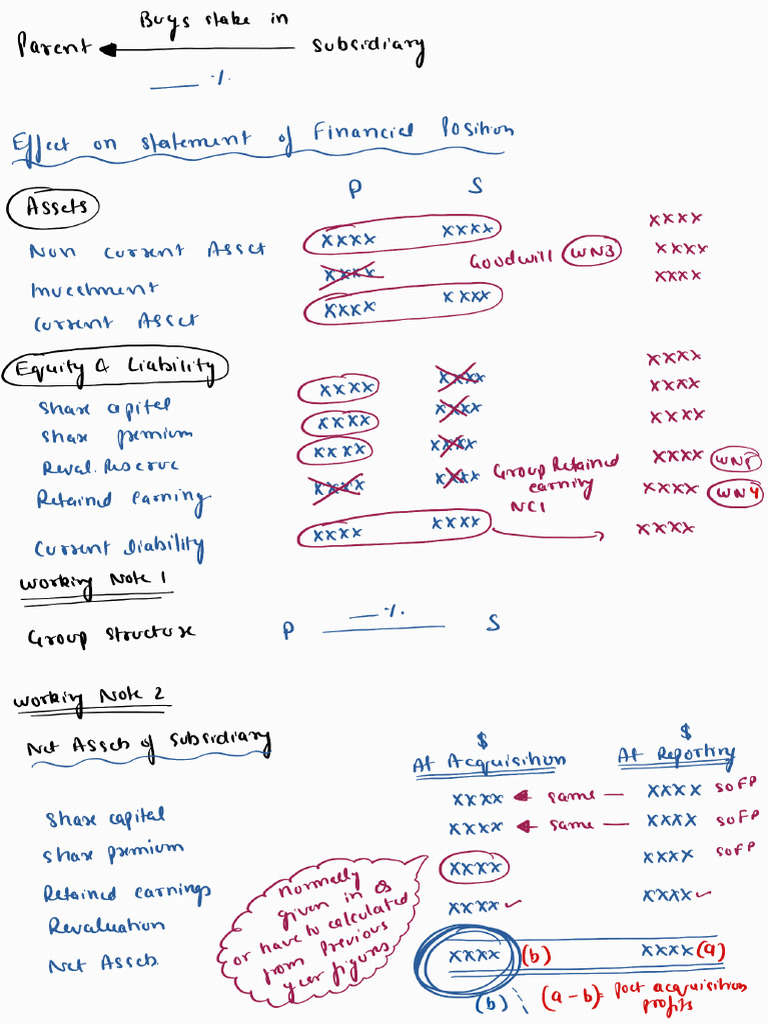 Buys stake in
Parent ◄ subsidiary
___ %
Effect on statement of Financial Position
P S
Assets
XXXX
Non current Asset XXXX XXXX
Goodwill WN3 XXXX
Investment XXXX XXXX
Current Asset XXXX XXXX
Equity & Liability XXXX
Share capital XXXX XXXX XXXX
Share premium XXXX XXXX XXXX
Reval. Reserve XXXX XXXX XXXX WN5
Retained earning XXXX XXXX Group Retained earning
NCI XXXX WN4
Current liability XXXX XXXX XXXX
Working Note 1
Group structure P ___ % S
Working Note 2
Net Assets of subsidiary
$ $
At Acquisition At Reporting
Share capital XXXX ◄ same — XXXX SOFP
Share premium XXXX ◄ same — XXXX SOFP
Retained earnings XXXX XXXX SOFP
Revaluation XXXX ✓ XXXX ✓
Net Assets XXXX (b) XXXX (a)
normally
given in Q
or have to calculated
from previous
year figures
(b) (a-b)= Post acquisition
profits